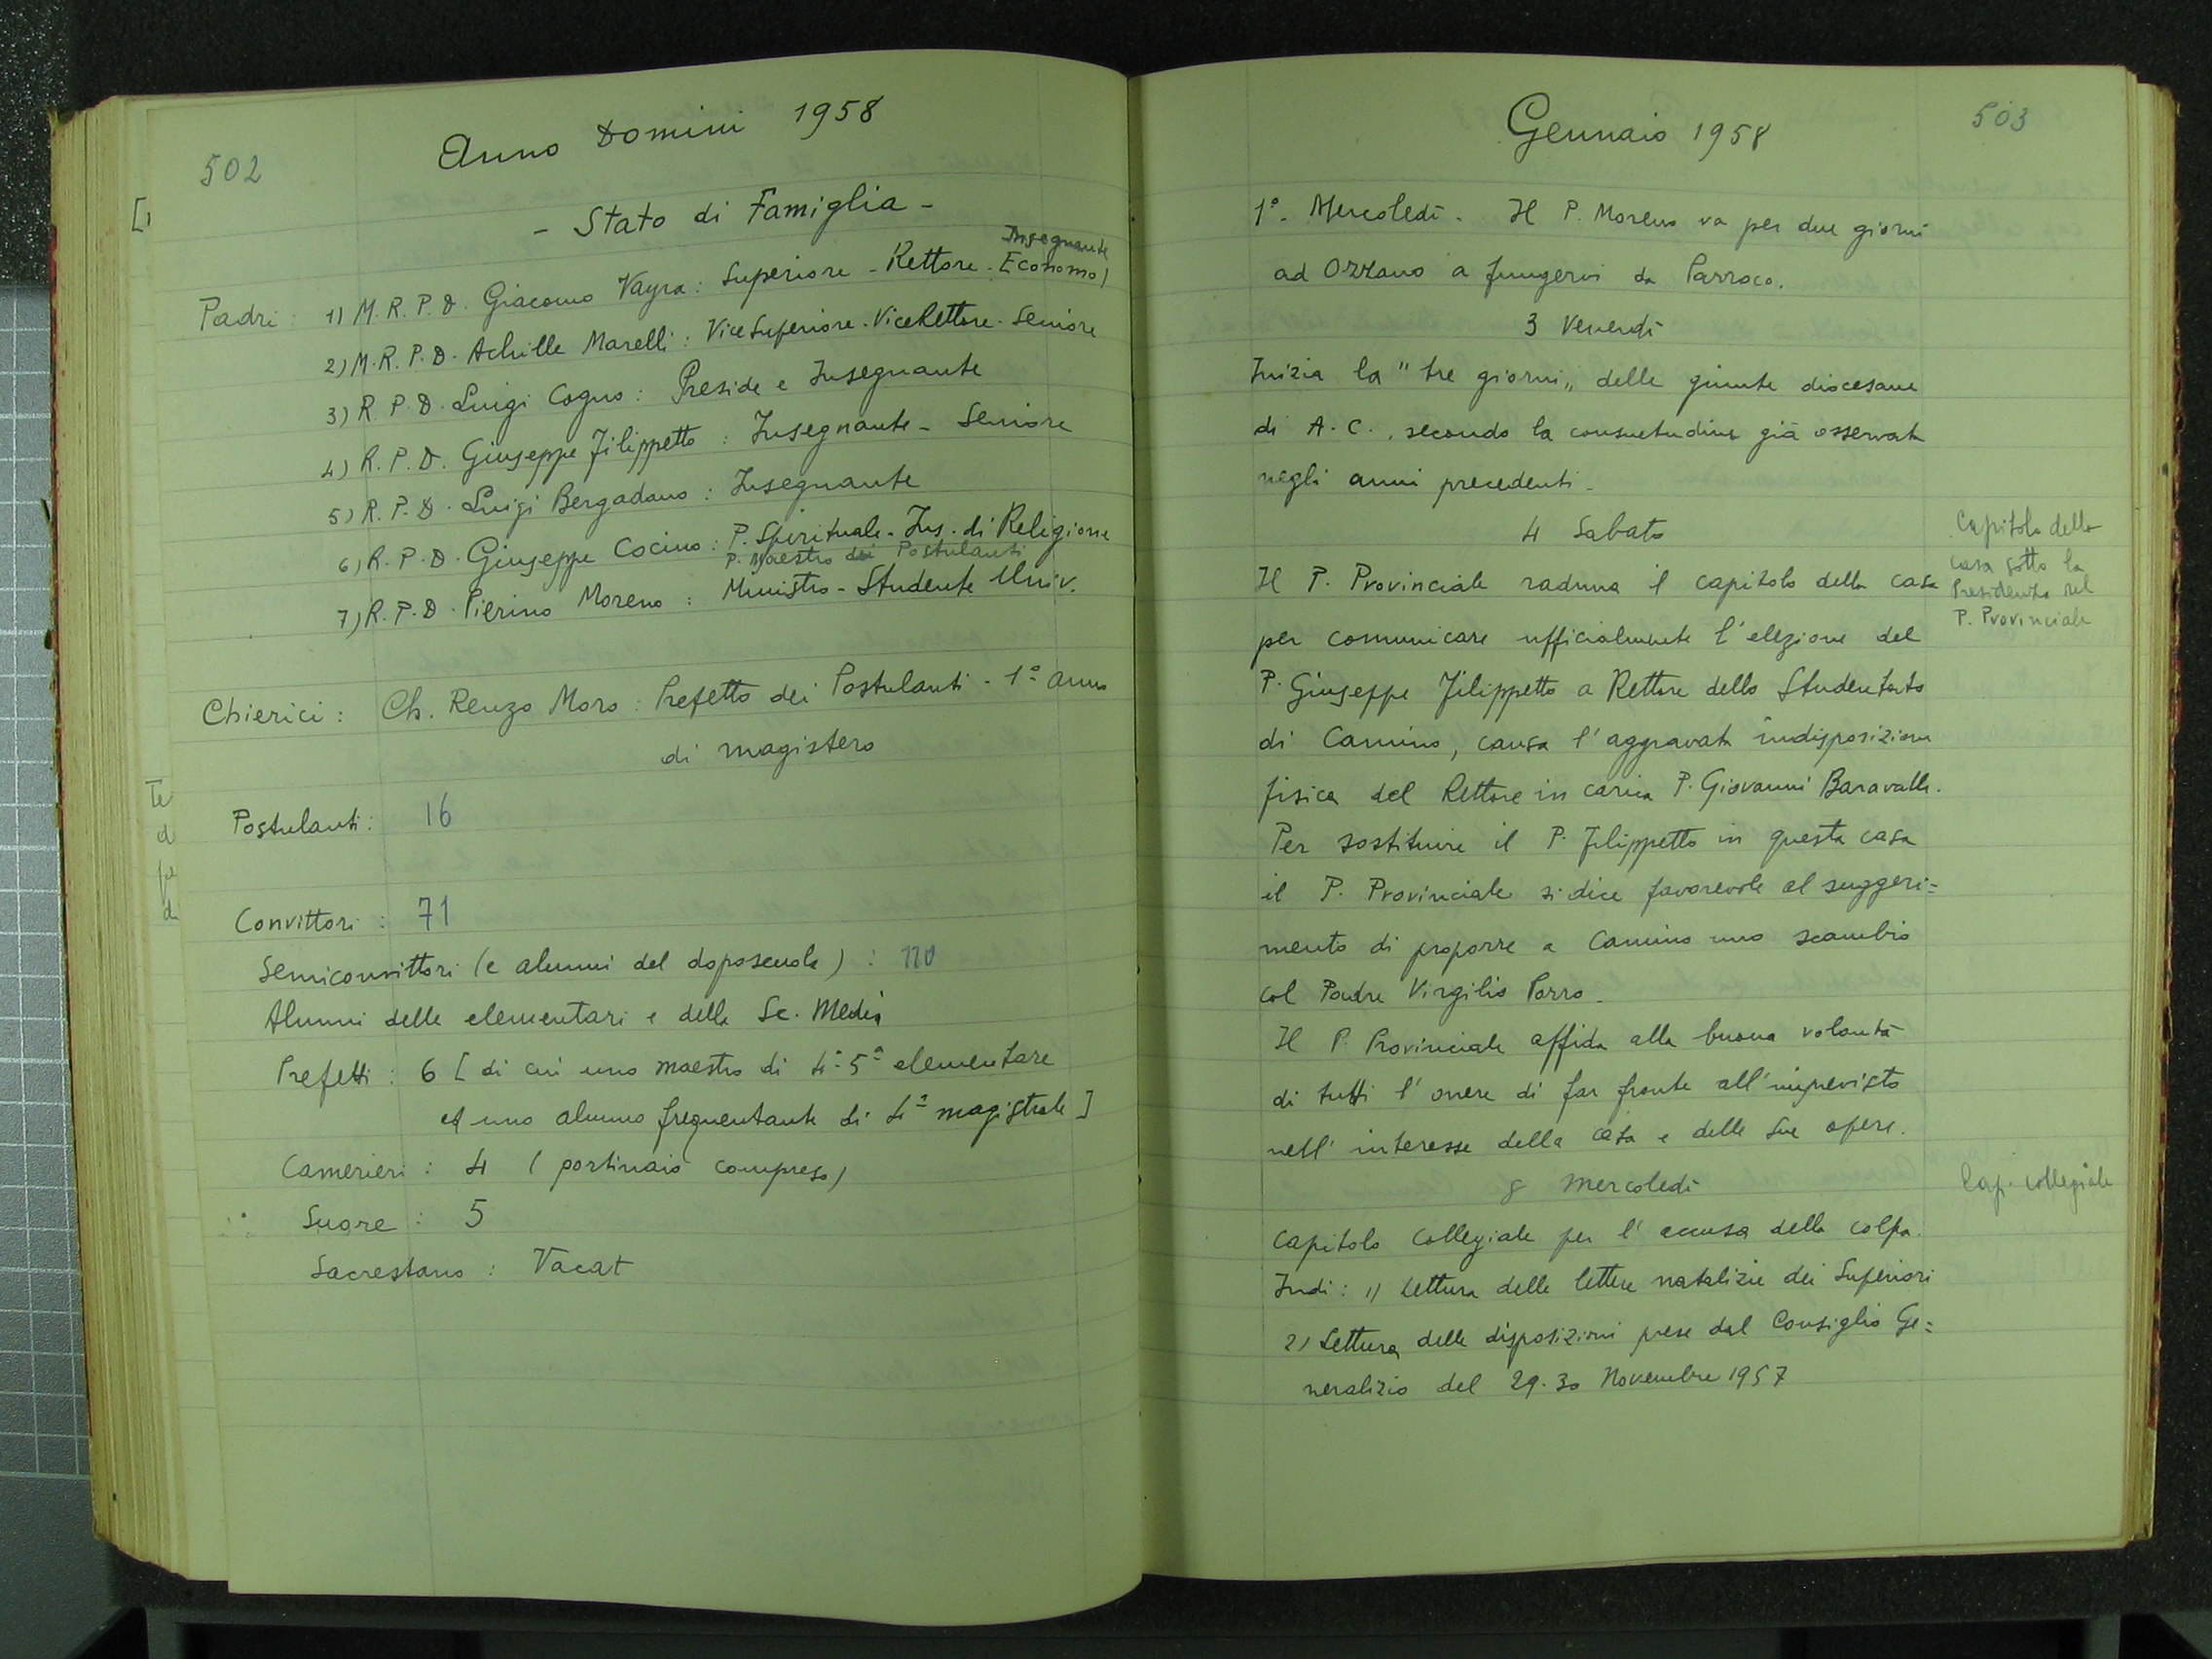 502
Anno Domini 1958
- Stato di Famiglia -
Insegnante
Padri: 1) M. R. P. D. Giacomo Vayra: Superiore - Rettore - Economo)
2) M. R. P. D. Achille Marelli: Vice Superiore - Vice Rettore - Seniore
3) R. P. D. Luigi Cogno: Preside e Insegnante
4) R. P. D. Giuseppe Filippetto: Insegnante - Seniore
5) R. P. D. Luigi Bergadano: Insegnante
6) R. P. D. Giuseppe Cocino: P. Spirituale - Ins. di Religione
P. Maestro dei Postulanti
7) R. P. D. Pierino Moreno: Ministro - Studente Univ.
Chierici: Ch. Renzo Moro: Prefetto dei Postulanti - 1° anno
di magistero
Postulanti: 16
Convittori: 71
Semiconvittori (e alunni del doposcuola): 110
Alunni delle elementari e della Sc. Media
Prefetti: 6 [di cui uno maestro di 4ª-5ª elementare
ed uno alunno frequentante di 4ª magistrale]
Camerieri: 4 (portinaio compreso)
Suore: 5
Sacrestano: Vacat
503
Gennaio 1958
1°. Mercoledì. Il P. Moreno va per due giorni
ad Ozzano a fungervi da Parroco.
3 Venerdì
Inizia la "tre giorni„ delle giunte diocesane
di A. C., secondo la consuetudine già osservata
negli anni precedenti.
4 Sabato
Capitolo della
casa sotto la
Presidenza del
P. Provinciale
Il P. Provinciale raduna il capitolo della casa
per comunicare ufficialmente l'elezione del
P. Giuseppe Filippetto a Rettore dello Studentato
di Camino, causa l'aggravata indisposizione
fisica del Rettore in carica P. Giovanni Baravalle.
Per sostituire il P. Filippetto in questa casa
il P. Provinciale si dice favorevole al suggeri=
mento di proporre a Camino uno scambio
col Padre Virgilio Porro.
Il P. Provinciale affida alla buona volontà
di tutti l'onere di far fronte all'imprevisto
nell'interesse della casa e delle sue opere.
8 Mercoledì
Cap. collegiale
Capitolo Collegiale per l'accusa della colpa.
Indi: 1) Lettura delle lettere natalizie dei Superiori
2) Lettura delle disposizioni prese dal Consiglio Ge=
neralizio del 29-30 Novembre 1957